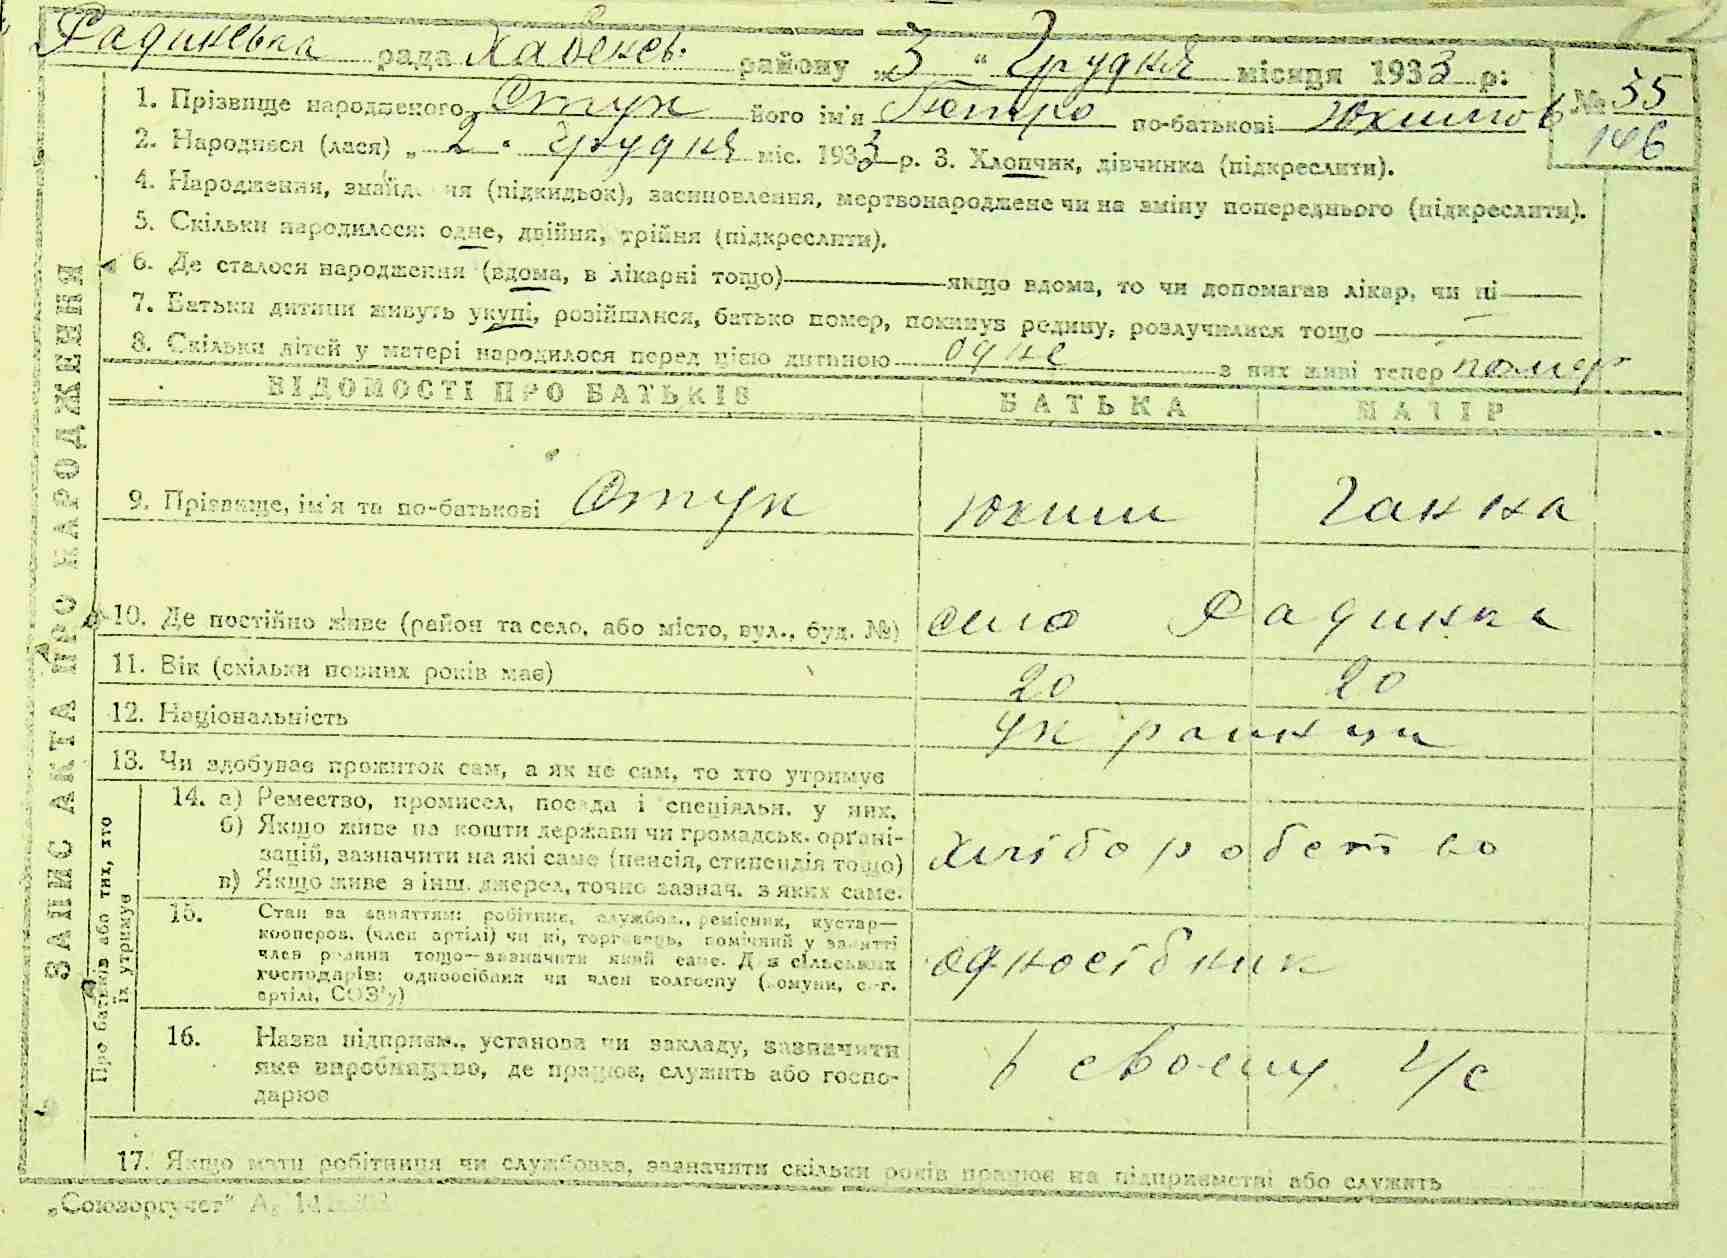 Радинська рада Хабенсь. району „3“ Грудня місяця 1933 р:
№ 35
146
1. Прізвище народженого Стук його ім'я Петро по-батькові Юхимов
2. Народився (лася) „2“ грудня міс. 1933 р. 3. Хлопчик, дівчинка (підкреслити).
4. Народження, знайдення (підкидьок), засиновлення, мертвонароджене чи на зміну попереднього (підкреслити).
5. Скільки народилося: одне, двійня, трійня (підкреслити).
6. Де сталося народження (вдома, в лікарні тощо) якщо вдома, то чи допомагав лікар, чи ні
7. Батьки дитини живуть укупі, розійшлися, батько помер, покинув родину, розлучилися тощо
8. Скільки дітей у матері народилося перед цією дитиною одне з них живі тепер помер
ВІДОМОСТІ ПРО БАТЬКІВ БАТЬКА МАТІР
9. Прізвище, ім'я та по-батькові Стук Юхим Ганна
10. Де постійно живе (район та село, або місто, вул., буд. №) село Радинка
11. Вік (скільки повних років має) 20 20
12. Національність українці
13. Чи здобуває прожиток сам, а як не сам, то хто утримує
14. а) Ремество, промисел, посада і спеціяльн. у них.
б) Якщо живе на кошти держави чи громадськ. органі-
зацій, зазначити на які саме (пенсія, стипендія тощо) хліборобство
в) Якщо живе з інш. джерел, точно зазнач. з яких саме.
15. Стан за заняттям: робітник, службов., ремісник, кустар—
кооперов. (член артілі) чи ні, торговець, помічний у занятті
член родини тощо—зазначити який саме. Для сільських
господарів: одноосібник чи член колгоспу (комуни, с.-г. одноосібник
артілі, СОЗ'у)
16. Назва підприєм., установи чи закладу, зазначити
яке виробництво, де працює, служить або госпо- в своему г/с
дарює
17. Якщо мати робітниця чи службовка, зазначити скільки років працює на підприємстві або служить
ЗАПИС АКТА ПРО НАРОДЖЕННЯ
Про батьків або тих, хто
їх утримує
„Союзоргучет“